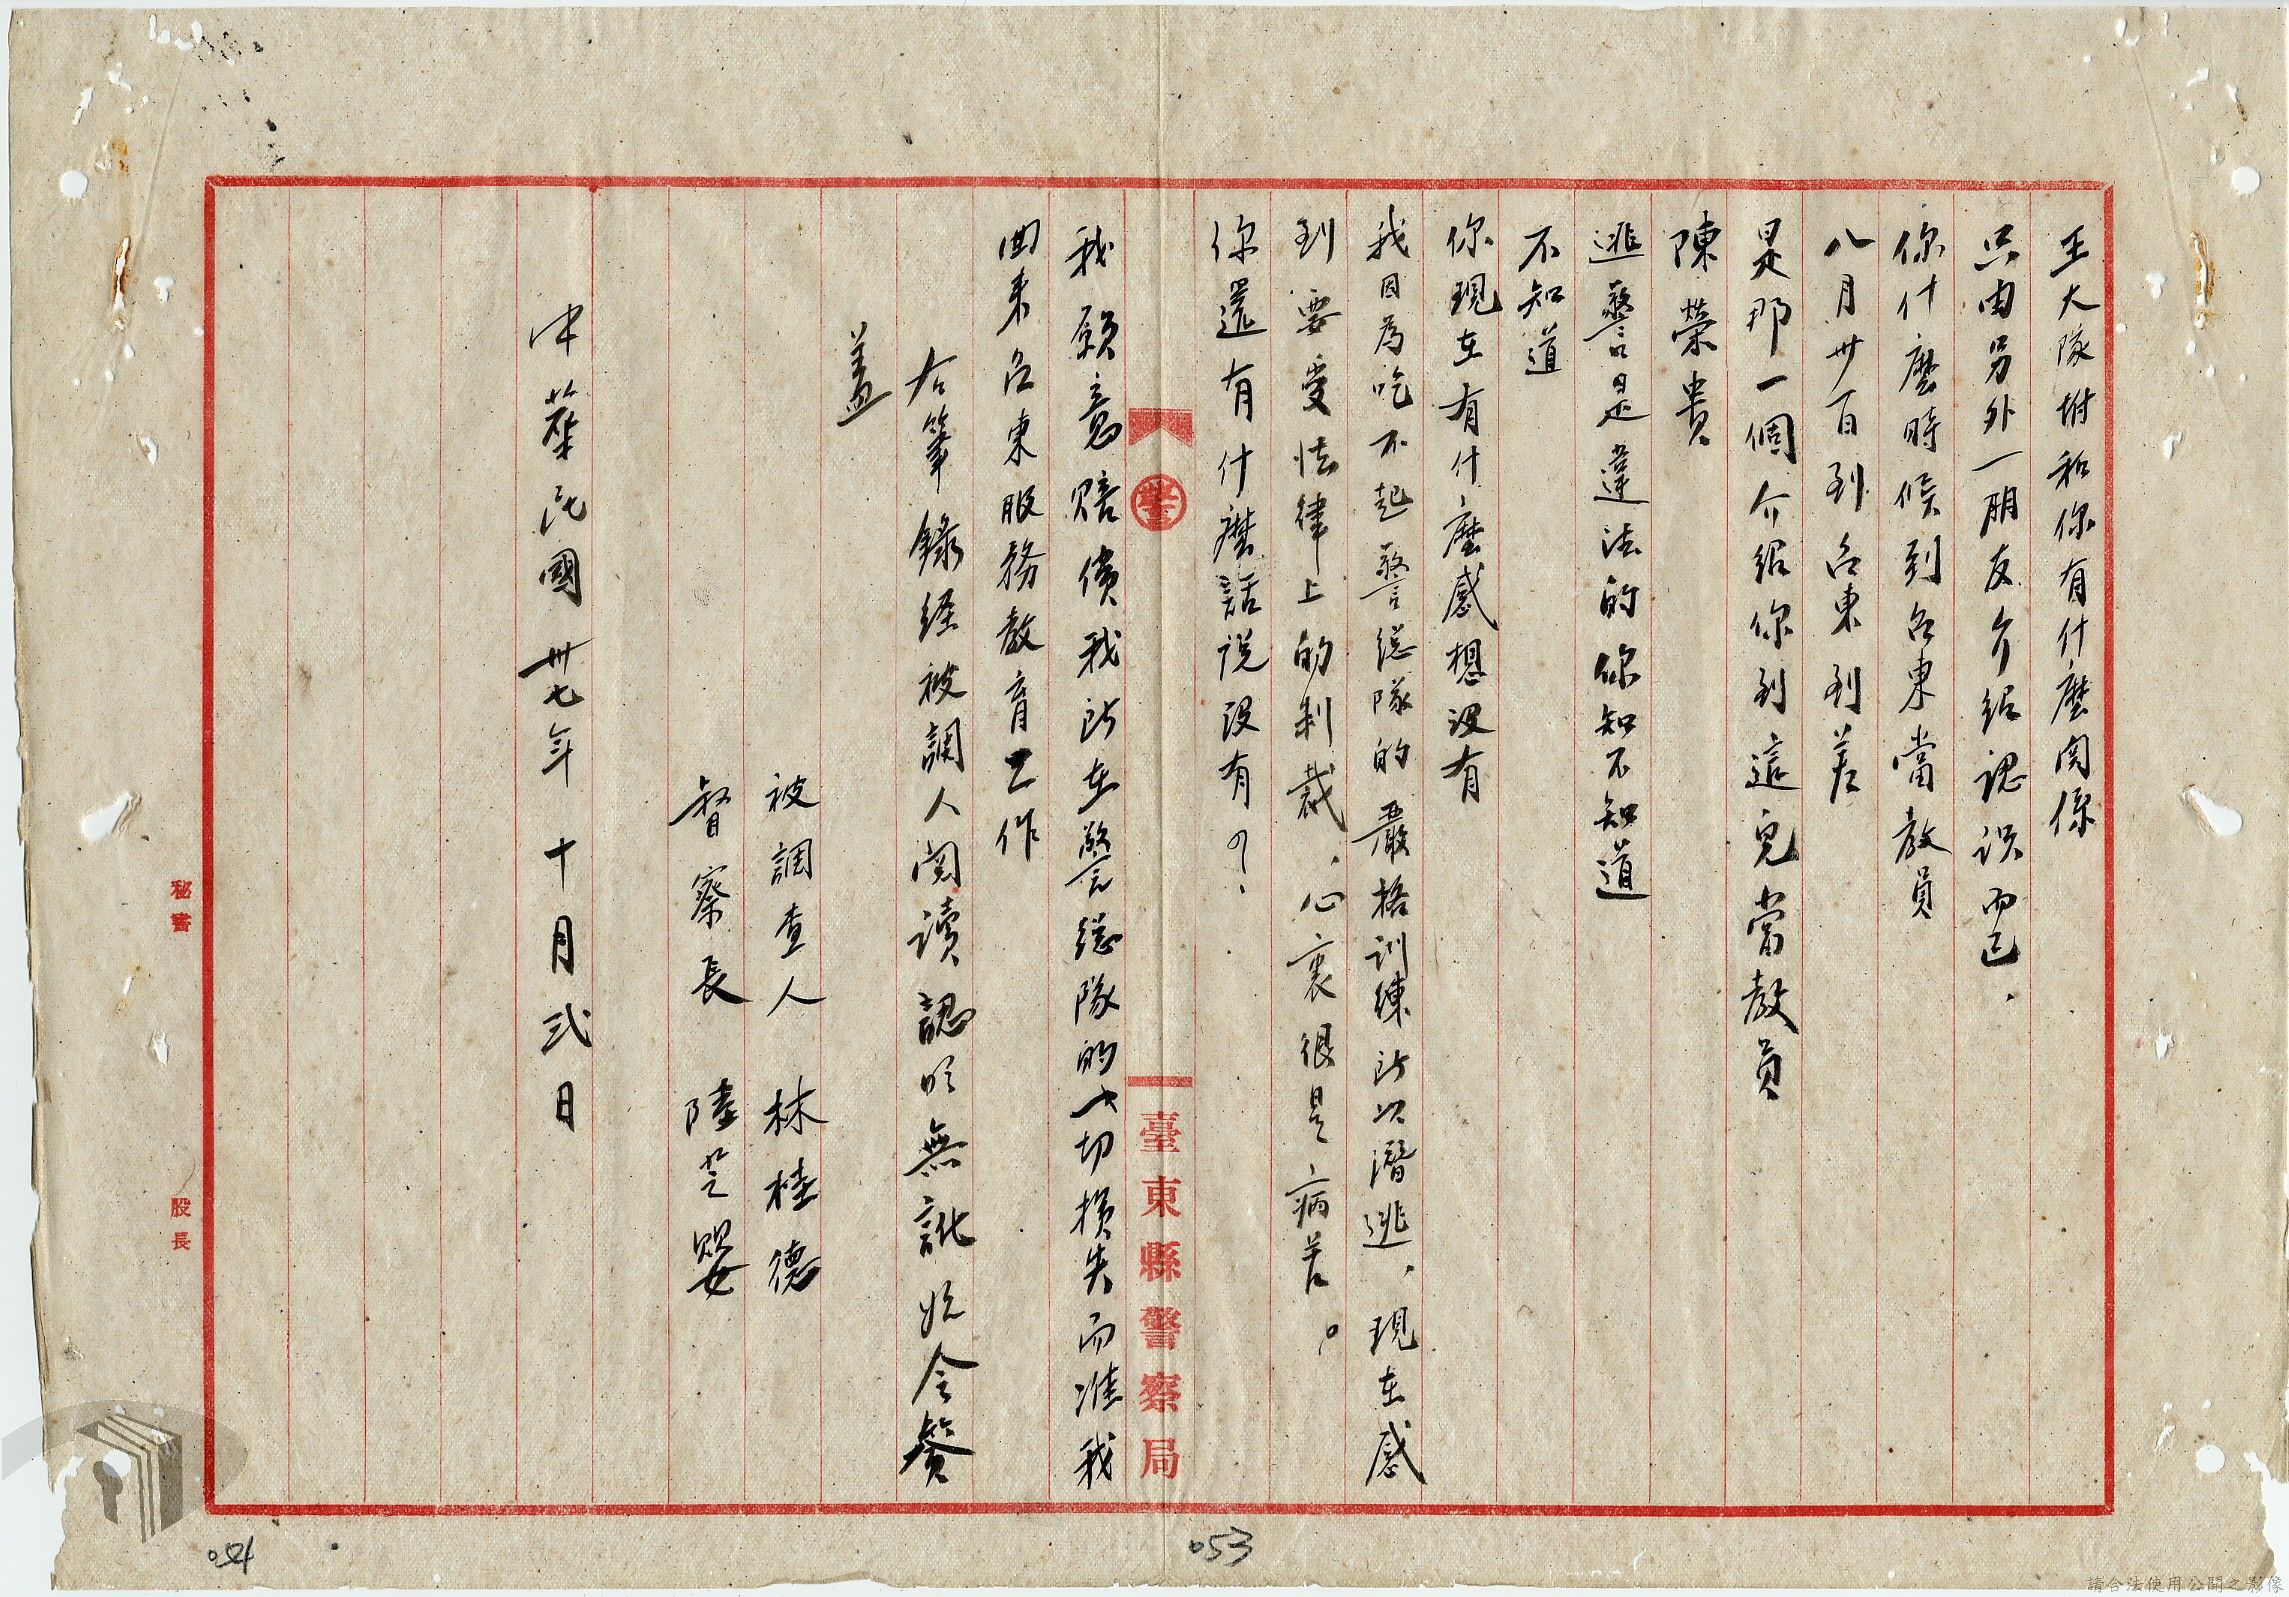 王大隊坿和你有什麼関係
只由另外一朋友介紹認识而已．
你什麼時候到台東當教員
八月卅一日到台東到差
是那一個介紹你到這兒當教員
陳榮貴
逃警是違法的你知不知道
不知道
你現在有什麼感想沒有
我因為吃不起警总隊的嚴格训練所以潛逃，現在感
到要受法律上的制裁，心裏很是病苦。
你還有什麼話说沒有？
臺東縣警察局
我願意賠償我所在警总隊的一切損失而准我
回来台東服務教育工作
右筆錄经被調人閱读認明無訛始令簽
蓋
被調查人 林桂德
督察長 陸芝嬰
中華民國卅七年十月弍日
秘書
股長
053
054
請合法使用公開之影像